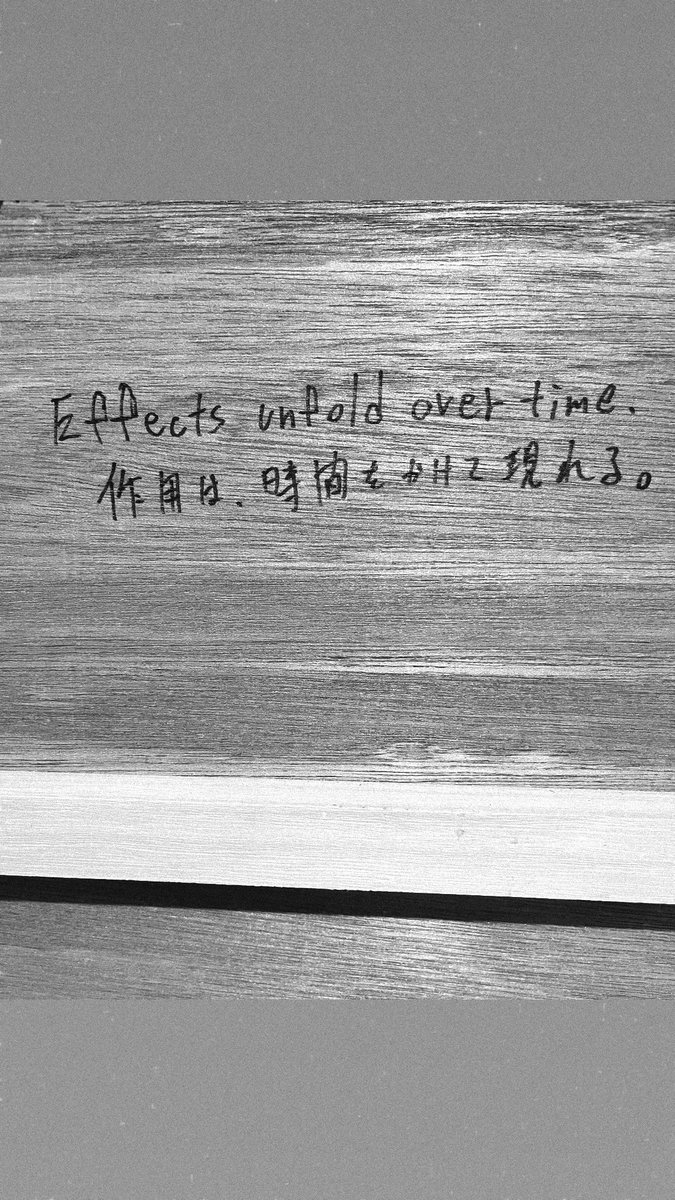 Effects unfold over time.
作用は、時間をかけて現れる。